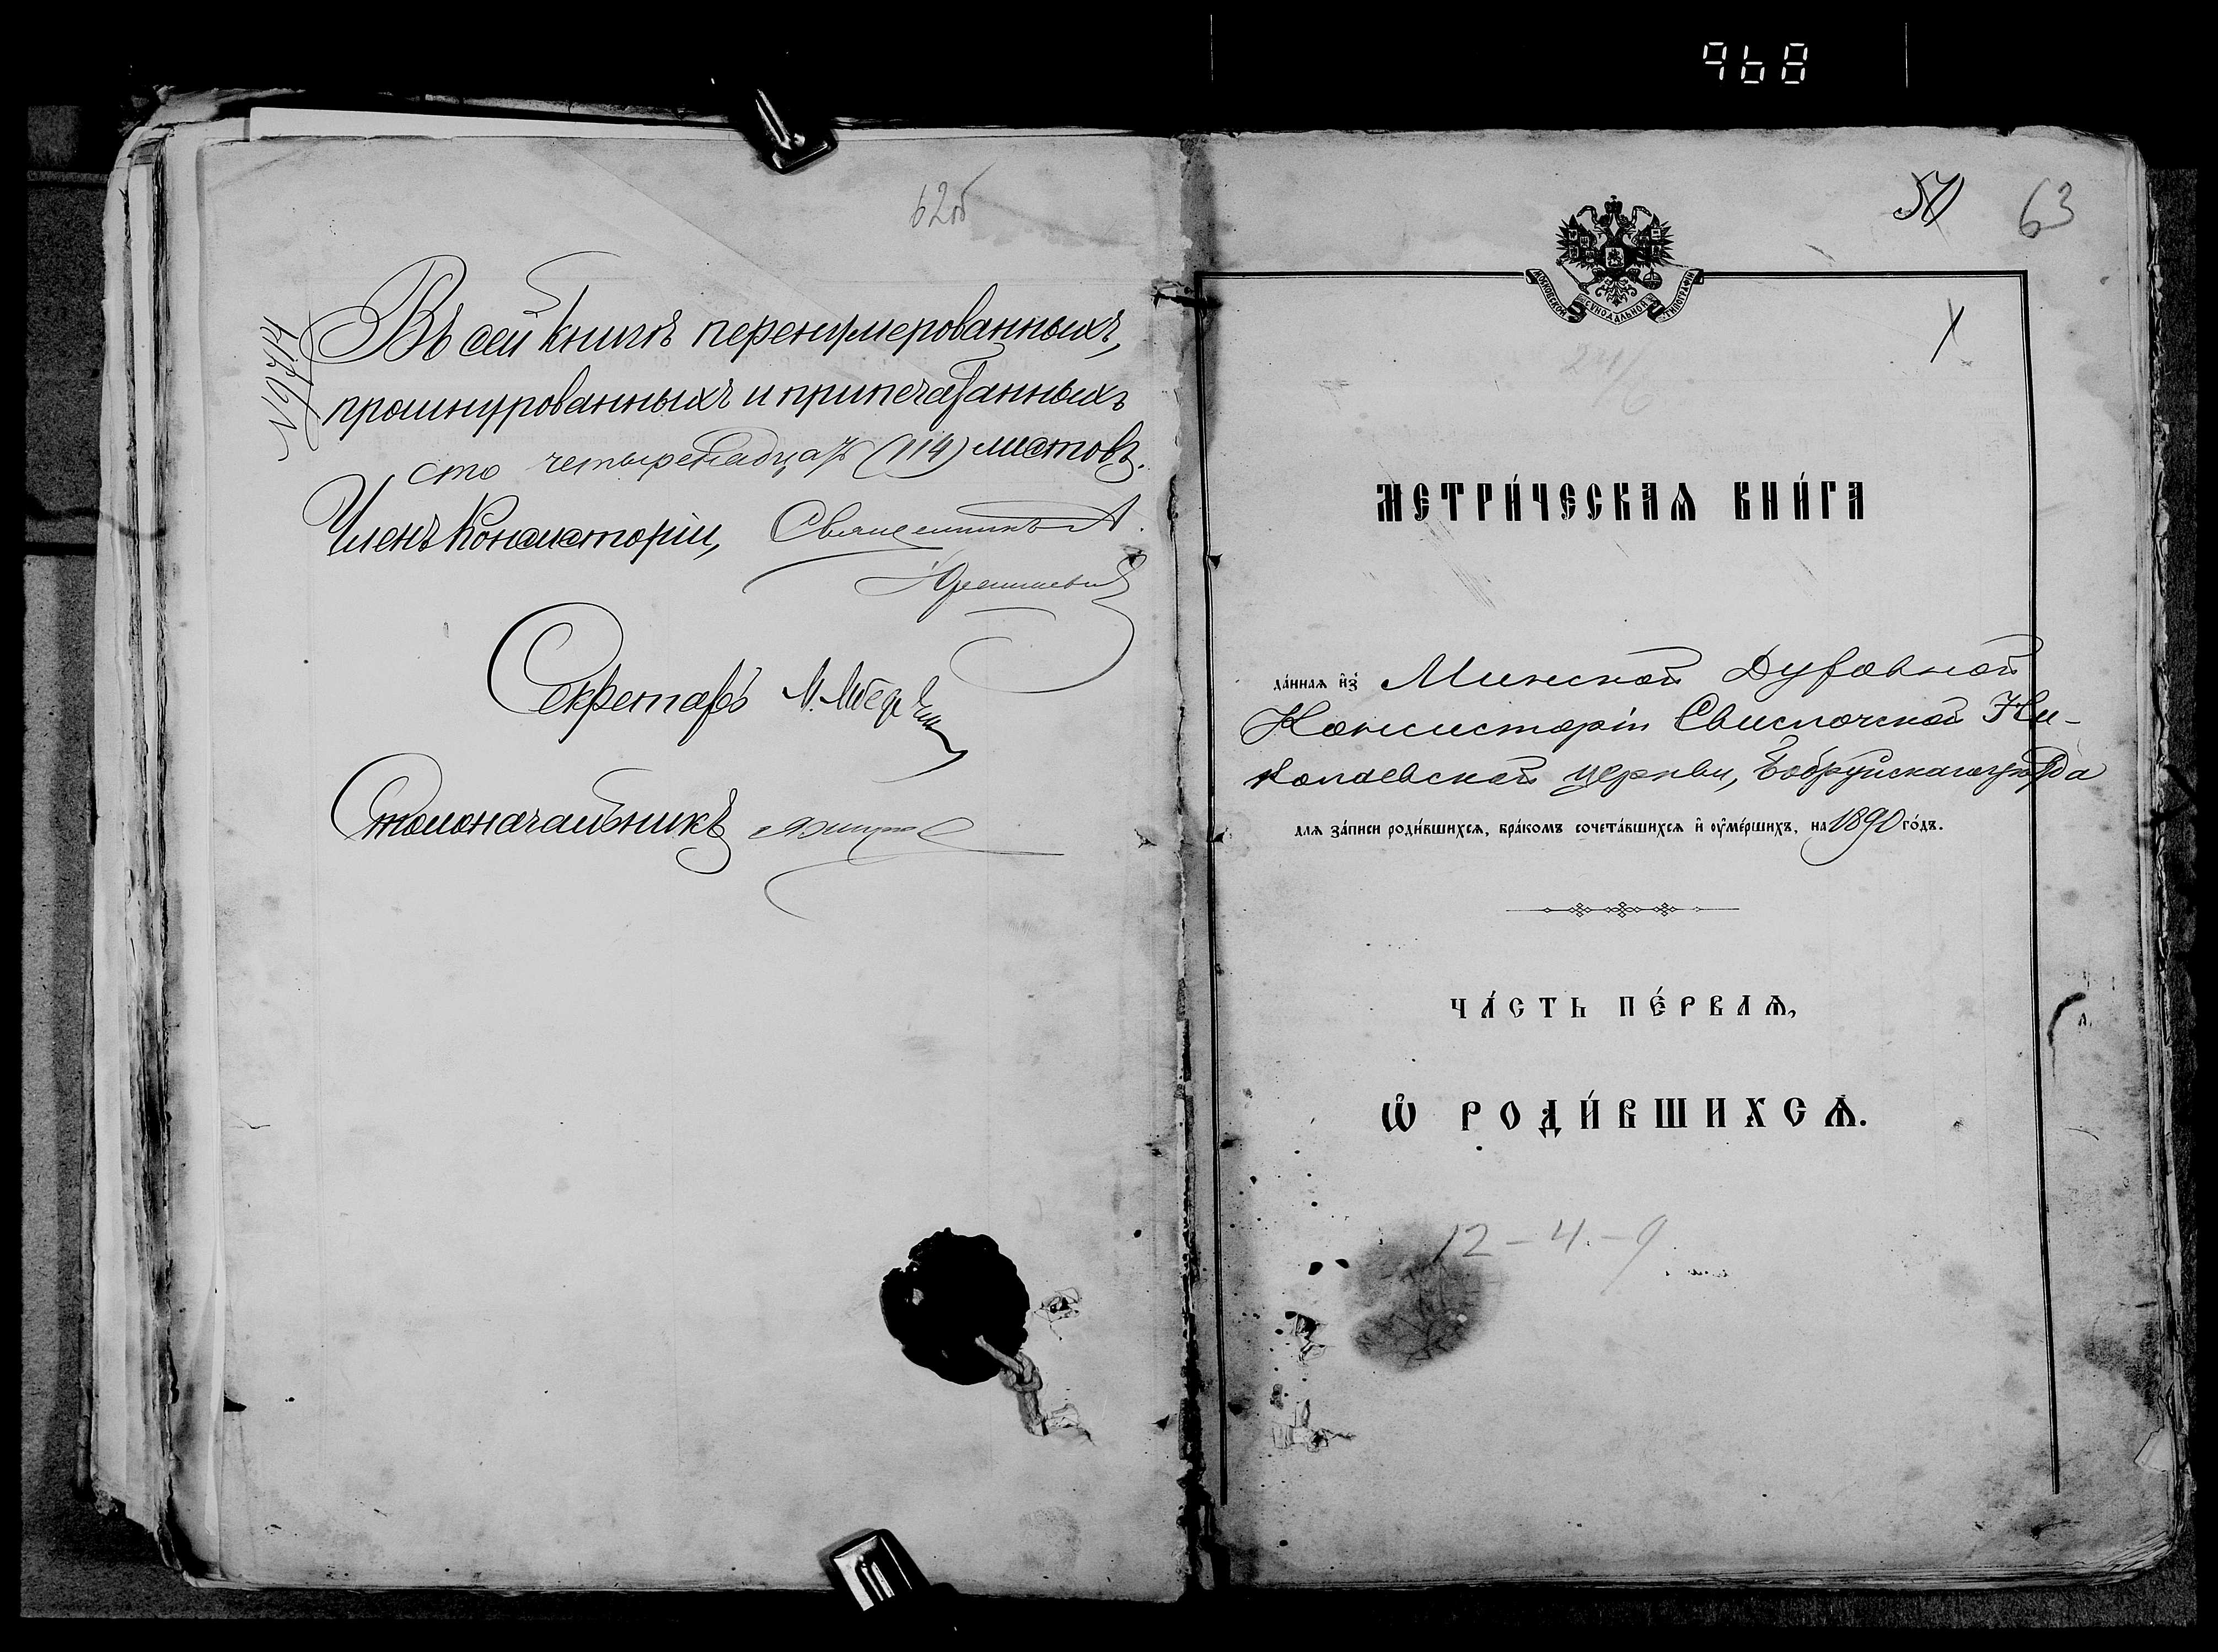 968
62об
Въ сей книгѣ перенумерованныхъ,
прошнурованныхъ и припечатанныхъ
сто четыренадцать (114) листовъ.
Членъ Консисторіи, Священникъ А.
Секретарь
Столоначальникъ
63
МОСКОВСКОЙ СѴНОДАЛЬНОЙ ТИПОГРАФІИ
МЕТРИ́ЧЕСКАѦ КНИ́ГА
да́ннаѧ и҆зъ Минской Духовной
Консисторіи Свислочской Ни-
колаевской церкви, Бобруйскаго уѣзда
для за́писи роди́вшихсѧ, бра́комъ сочета́вшихсѧ и҆ ᲂу҆ме́ршихъ, на 1890 го́дъ.
ЧА́СТЬ ПЕ́РВАѦ,
Ѡ҆ РОДИ́ВШИХСѦ.
12-4-9